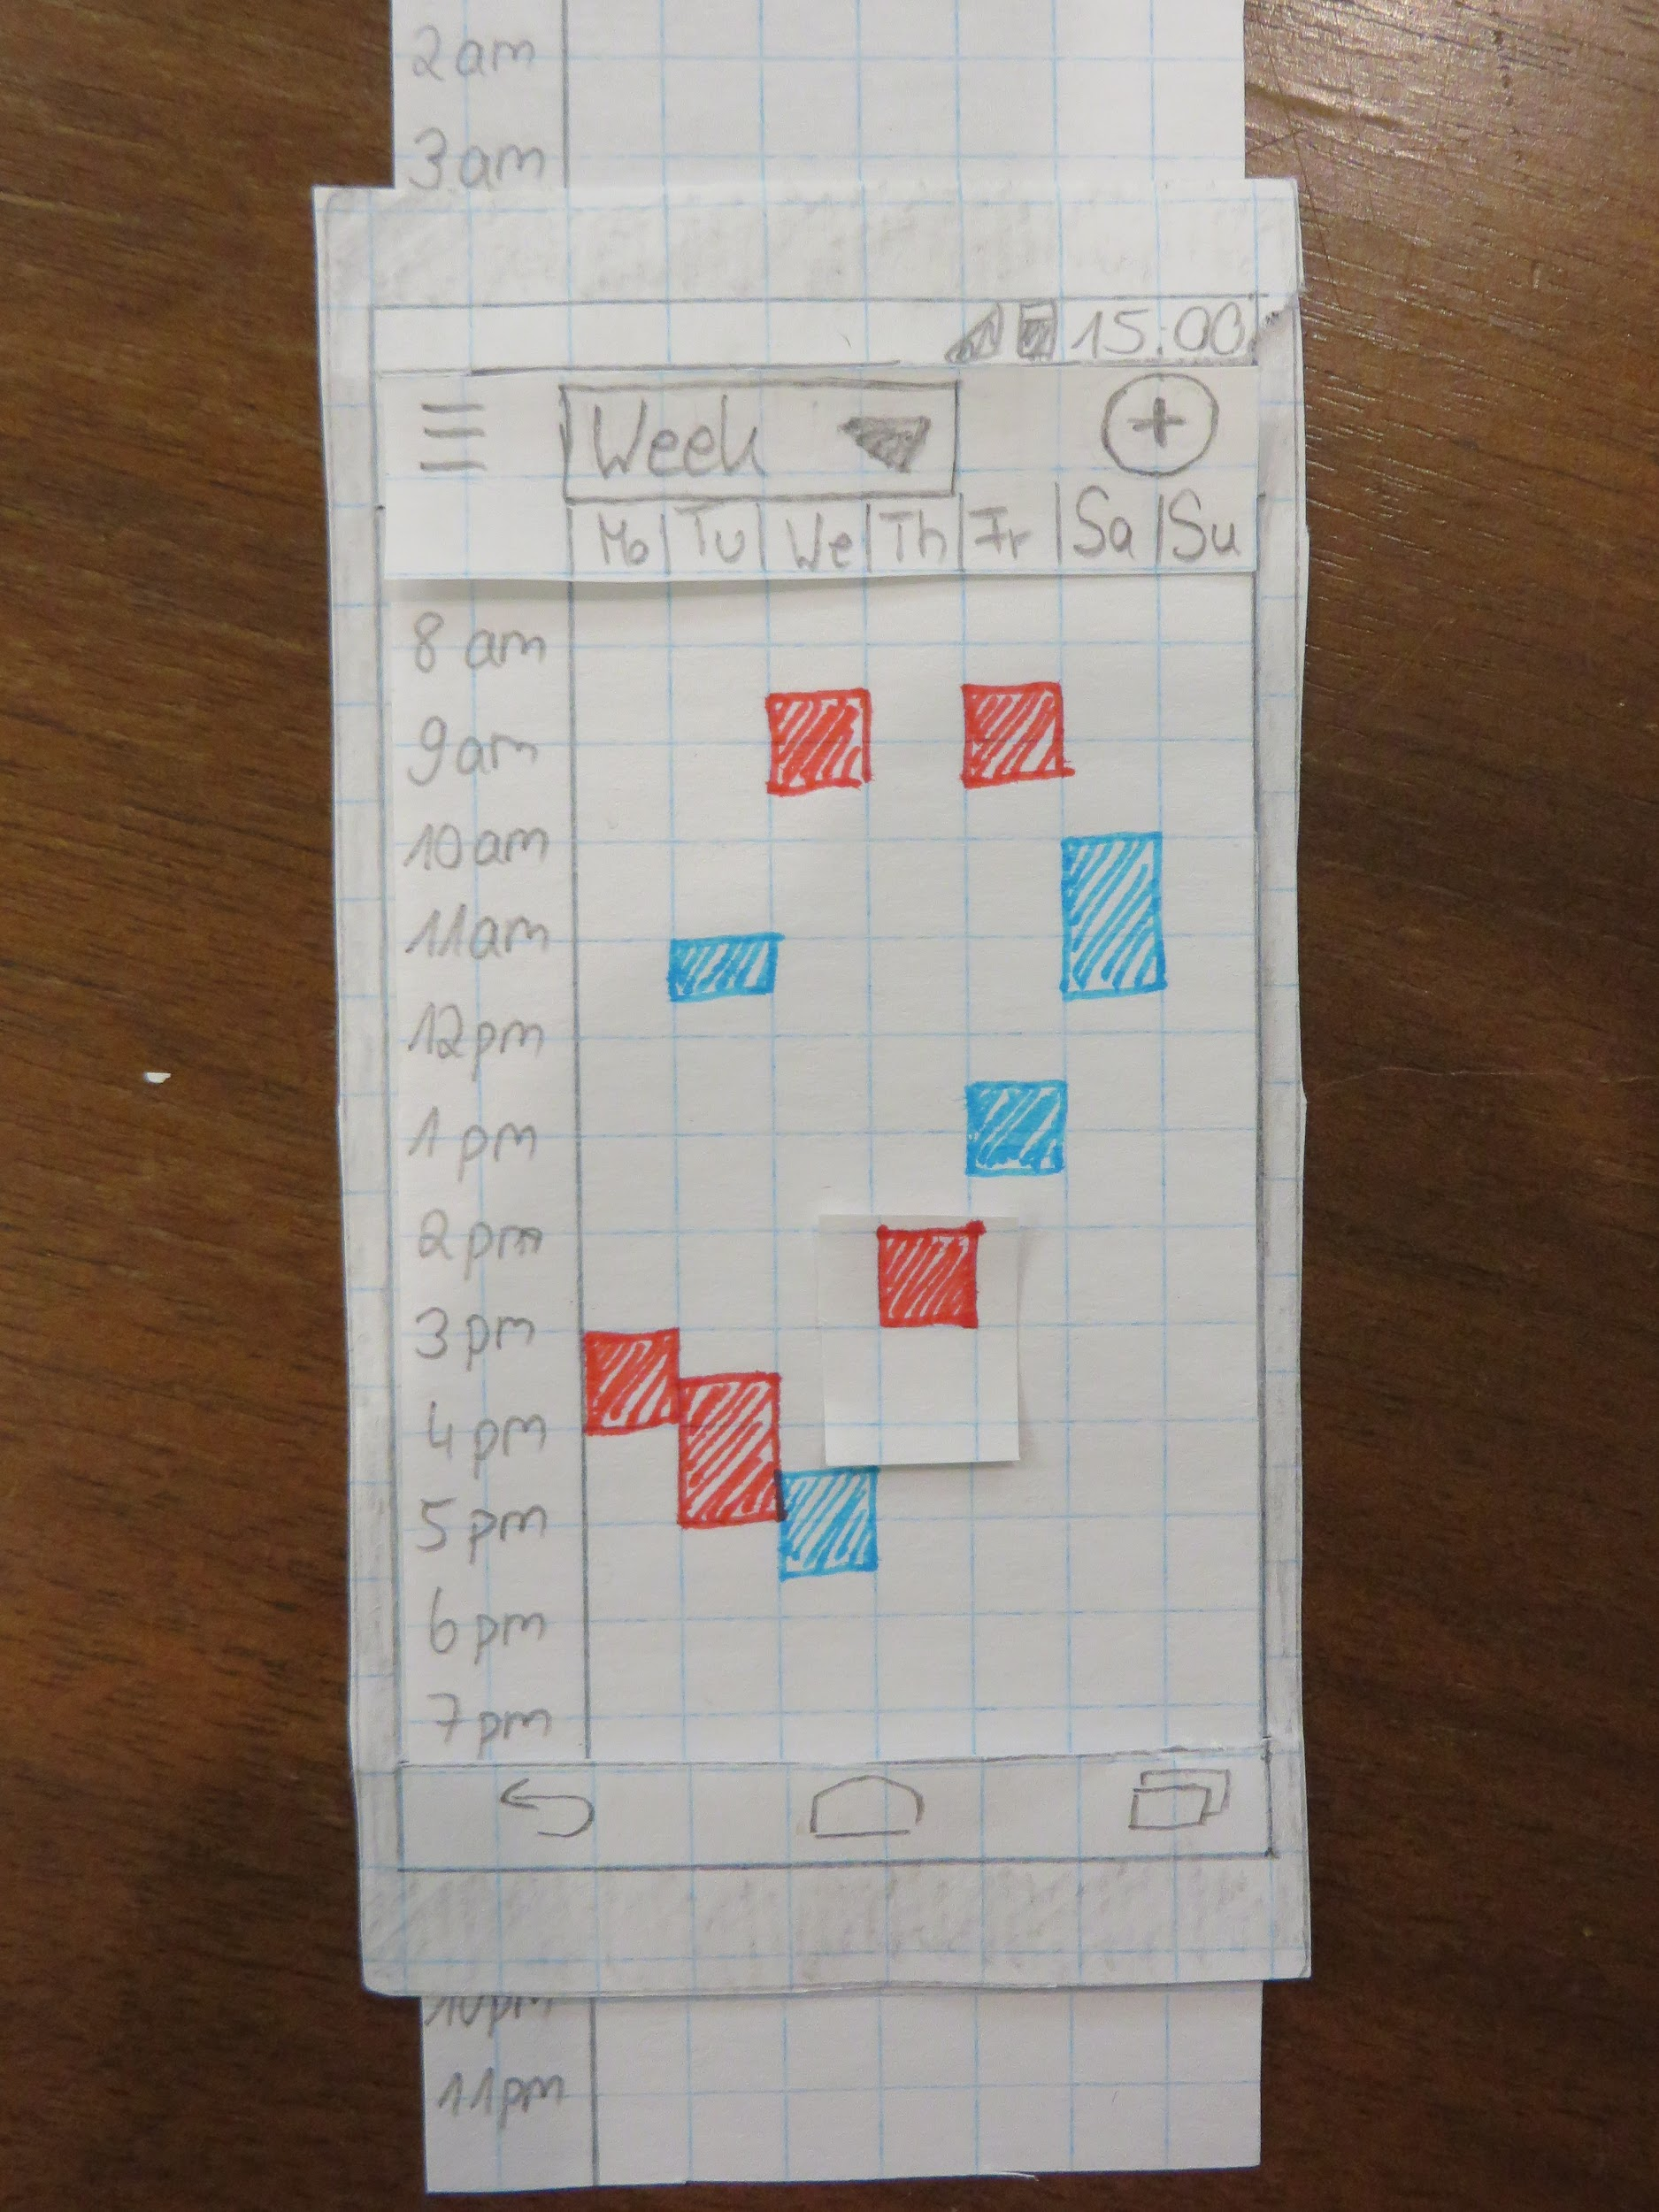 2am
3am
15:00
Week
Mo Tu We Th Fr Sa Su
8 am
9am
10am
11am
12pm
1 pm
2pm
3pm
4pm
5 pm
6pm
7pm
10pm
11pm